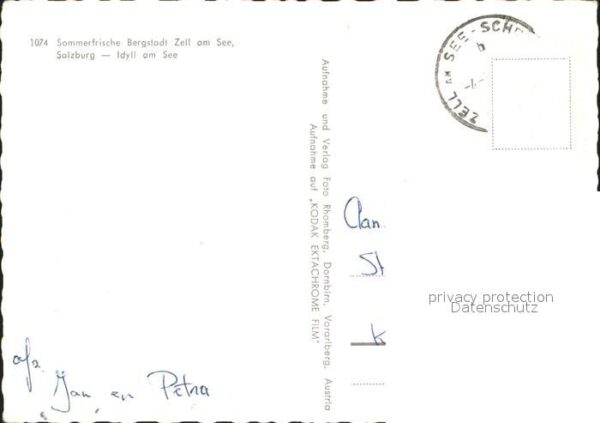 1074 Sommerfrische Bergstadt Zell am See,
Salzburg — Idyll am See
Aufnahme und Verlag Foto Rhomberg, Dornbirn, Vorarlberg, Austria
Aufnahme auf „KODAK EKTACHROME FILM"
ZELL AM SEE-SCH
b
Aan
St
k
privacy protection
Datenschutz
afz.
Jan en Petra